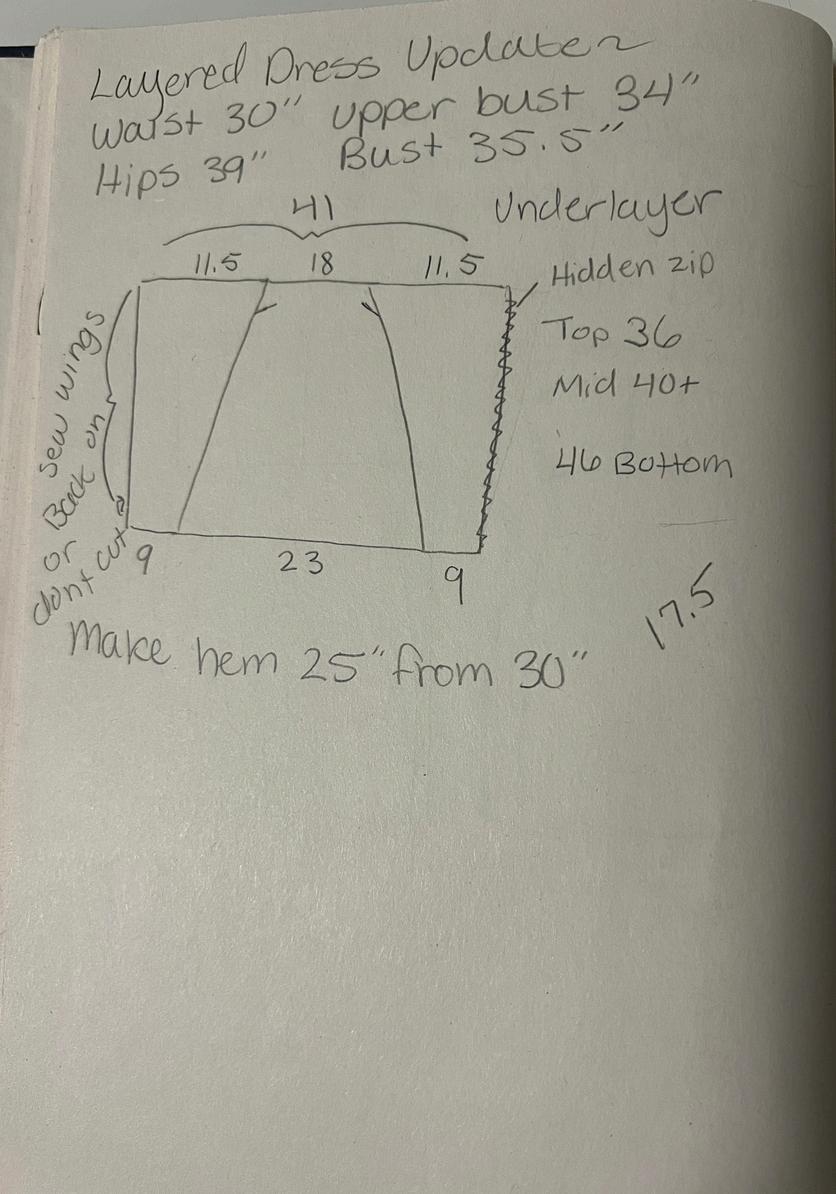 Layered Dress Update
Waist 30" upper bust 34"
Hips 39" Bust 35.5"
41
Underlayer
11.5 18 11.5
Hidden zip
Top 36
Mid 40+
46 Bottom
sew wings
Back on
or
dont cut
9 23 9
17.5
Make hem 25" from 30"